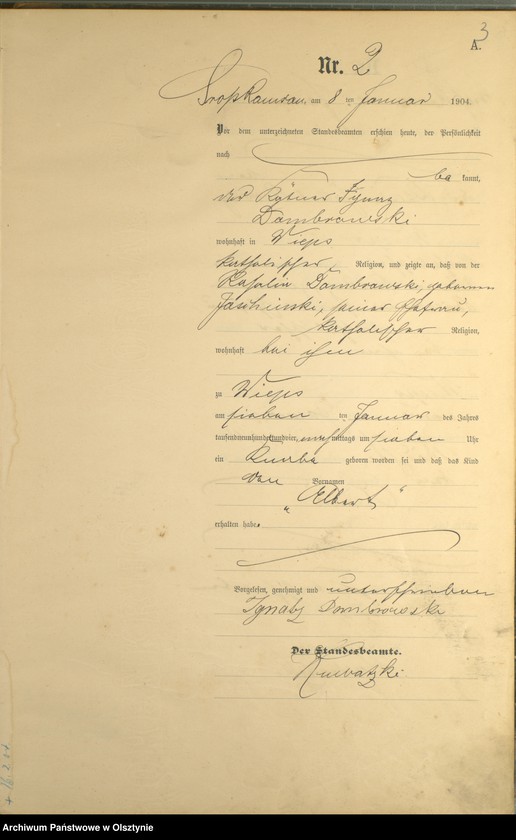 3
A.
Nr. 2
am 8 ten Januar 1904.
Vor dem unterzeichneten Standesbeamten erschien heute, der Persönlichkeit
nach
bekannt,
der Kätner Ignaz
Dombrowski
wohnhaft in Wieps
katholischer Religion, und zeigte an, daß von der
Rosalia Dombrowski, geborenen
Jaschinski, seiner Ehefrau,
katholischer Religion,
wohnhaft bei ihm
zu Wieps
am sieben ten Januar des Jahres
tausendneunhundert vier, nachmittags um sieben Uhr
ein Knabe geboren worden sei und daß das Kind
den Vornamen
„Albert“
erhalten habe.
Vorgelesen, genehmigt und unterschrieben
Ignatz Dombrowski
Der Standesbeamte.
Archiwum Państwowe w Olsztynie